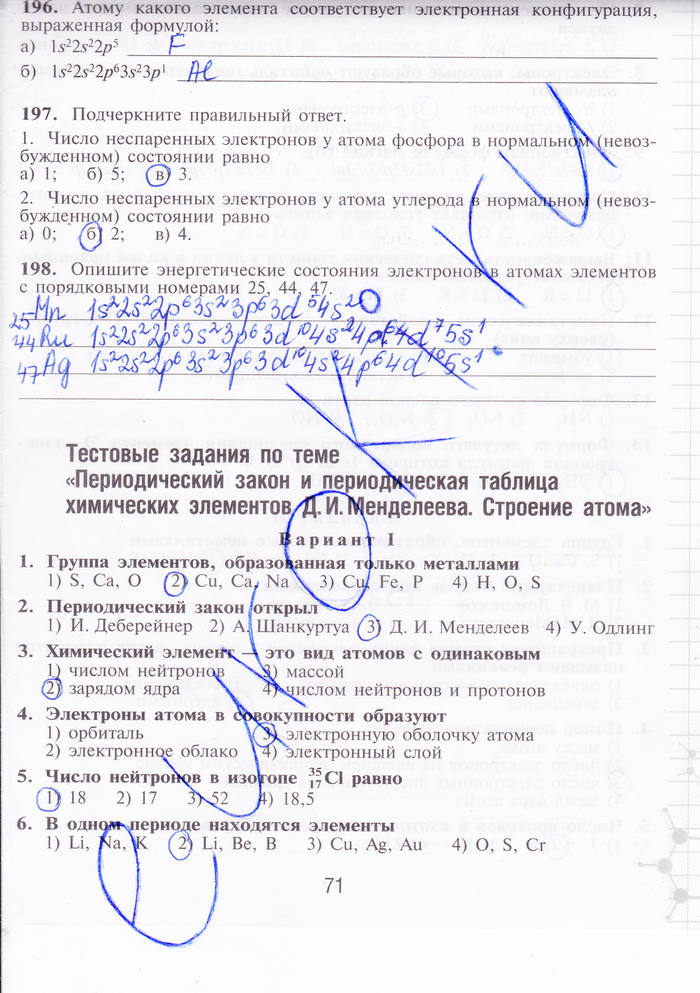 196. Атому какого элемента соответствует электронная конфигурация,
выраженная формулой:
а) 1s²2s²2p⁵ F
б) 1s²2s²2p⁶3s²3p¹ Al
197. Подчеркните правильный ответ.
1. Число неспаренных электронов у атома фосфора в нормальном (невоз-
бужденном) состоянии равно
а) 1; б) 5; в) 3.
2. Число неспаренных электронов у атома углерода в нормальном (невоз-
бужденном) состоянии равно
а) 0; б) 2; в) 4.
198. Опишите энергетические состояния электронов в атомах элементов
с порядковыми номерами 25, 44, 47.
₂₅Mn 1s²2s²2p⁶3s²3p⁶3d⁵4s²
₄₄Ru 1s²2s²2p⁶3s²3p⁶3d¹⁰4s²4p⁶4d⁷5s¹
₄₇Ag 1s²2s²2p⁶3s²3p⁶3d¹⁰4s²4p⁶4d¹⁰5s¹
Тестовые задания по теме
«Периодический закон и периодическая таблица
химических элементов Д. И. Менделеева. Строение атома»
Вариант I
1. Группа элементов, образованная только металлами
1) S, Ca, O 2) Cu, Ca, Na 3) Cu, Fe, P 4) H, O, S
2. Периодический закон открыл
1) И. Деберейнер 2) А. Шанкуртуа 3) Д. И. Менделеев 4) У. Одлинг
3. Химический элемент — это вид атомов с одинаковым
1) числом нейтронов 3) массой
2) зарядом ядра 4) числом нейтронов и протонов
4. Электроны атома в совокупности образуют
1) орбиталь 3) электронную оболочку атома
2) электронное облако 4) электронный слой
5. Число нейтронов в изотопе ³⁵₁₇Cl равно
1) 18 2) 17 3) 52 4) 18,5
6. В одном периоде находятся элементы
1) Li, Na, K 2) Li, Be, B 3) Cu, Ag, Au 4) O, S, Cr
71